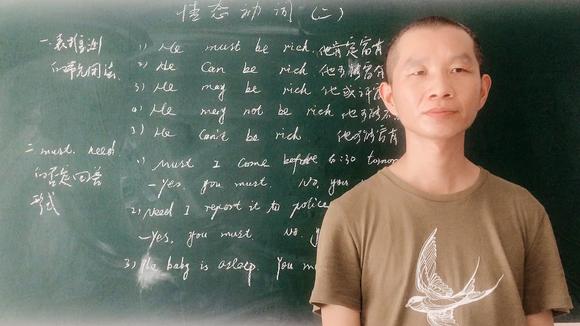 情态动词(二)
一.表推测的单句用法
1) He must be rich 他肯定富有
2) He Can be rich 他可能富有
3) He may be rich 他或许富
4) He may not be rich 他可能不
5) He Can't be rich 他不可能富有
二 must. need 的否定回答形式
1) Must I Come before 6:30 tomo
-Yes, you must. No, you
2) Need I report it to police
-Yes, you must. No, y
3) The baby is asleep. You m